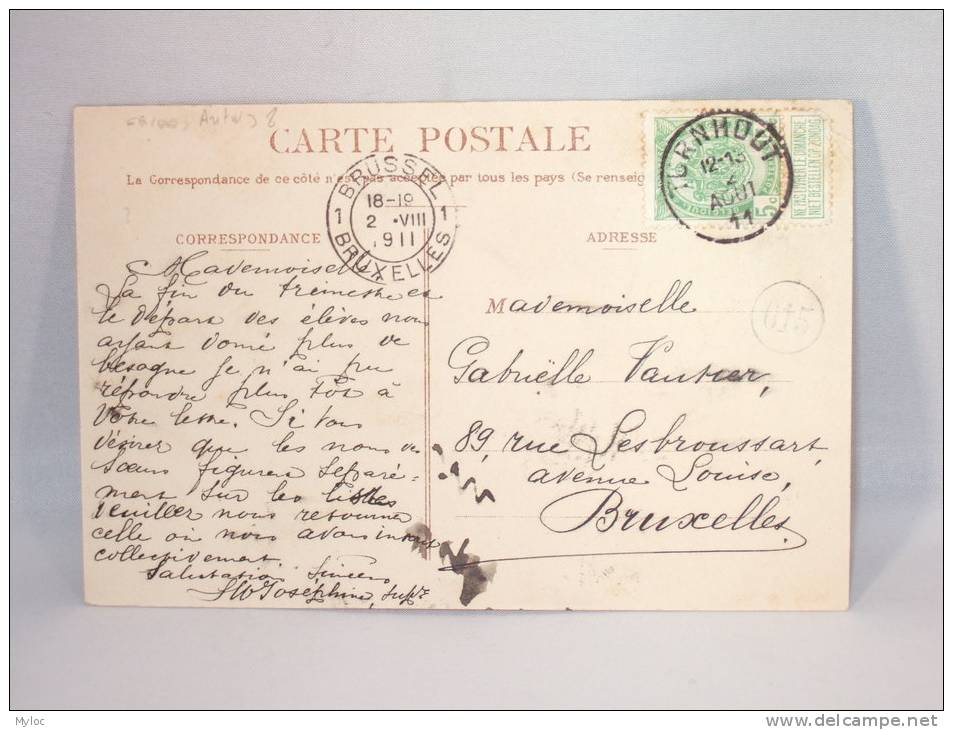 CARTE POSTALE
La Correspondance de ce côté n'est pas acceptée par tous les pays (Se renseig
BRUSSEL
1 18-19 1
2 VIII
1911
BRUXELLES
TURNHOUT
12-13
2
AOUT
11
5
NE PAS LIVRER LE DIMANCHE
NIET BESTELLEN OP ZONDAG
CORRESPONDANCE
ADRESSE
Mademoiselle
La fin du trimestre et
le départ des élèves nous
ayant donné plus de
besogne je n'ai pu
répondre plus tôt à
votre lettre. Si vous
désirez que les noms de
Sœurs figurent séparé-
ment sur les listes
veuillez nous retourner
celle où nous avons
collectivement
Salutations sincères
Joséphine, Supre
Mademoiselle
Gabrielle Vautier,
89, rue Lesbroussart,
avenue Louise,
Bruxelles.
615
Myloc
delcampe.net